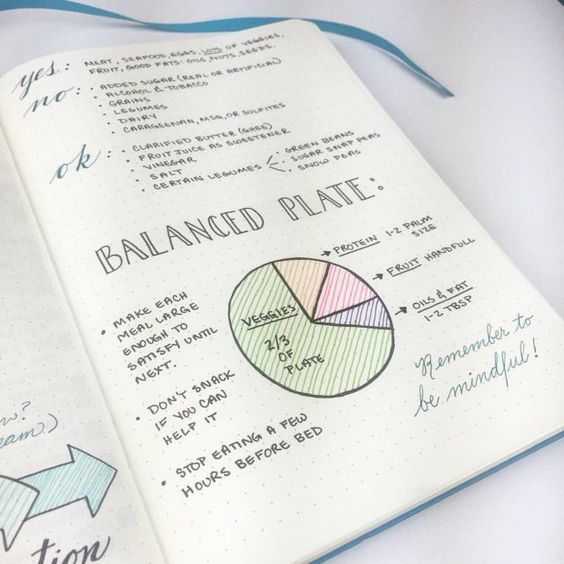 yes: MEAT, SEAFOOD, EGGS, LOTS OF VEGGIES,
FRUIT, GOOD FATS: OILS, NUTS, SEEDS.
no: • ADDED SUGAR (REAL OR ARTIFICIAL)
• ALCOHOL & TOBACCO
• GRAINS
• LEGUMES
• DAIRY
• CARAGEENAN, MSG, OR SULFITES
ok: • CLARIFIED BUTTER (GHEE)
• FRUIT JUICE AS SWEETENER
• VINEGAR
• SALT
• CERTAIN LEGUMES
• GREEN BEANS
• SUGAR SNAP PEAS
• SNOW PEAS
BALANCED PLATE:
PROTEIN 1-2 PALM
SIZE
FRUIT HANDFULL
OILS & FAT
1-2 TBSP
VEGGIES
2/3
OF
PLATE
• MAKE EACH
MEAL LARGE
ENOUGH TO
SATISFY UNTIL
NEXT.
• DON'T SNACK
IF YOU CAN
HELP IT
• STOP EATING A FEW
HOURS BEFORE BED
Remember to
be mindful!
w?
eam.)
tion